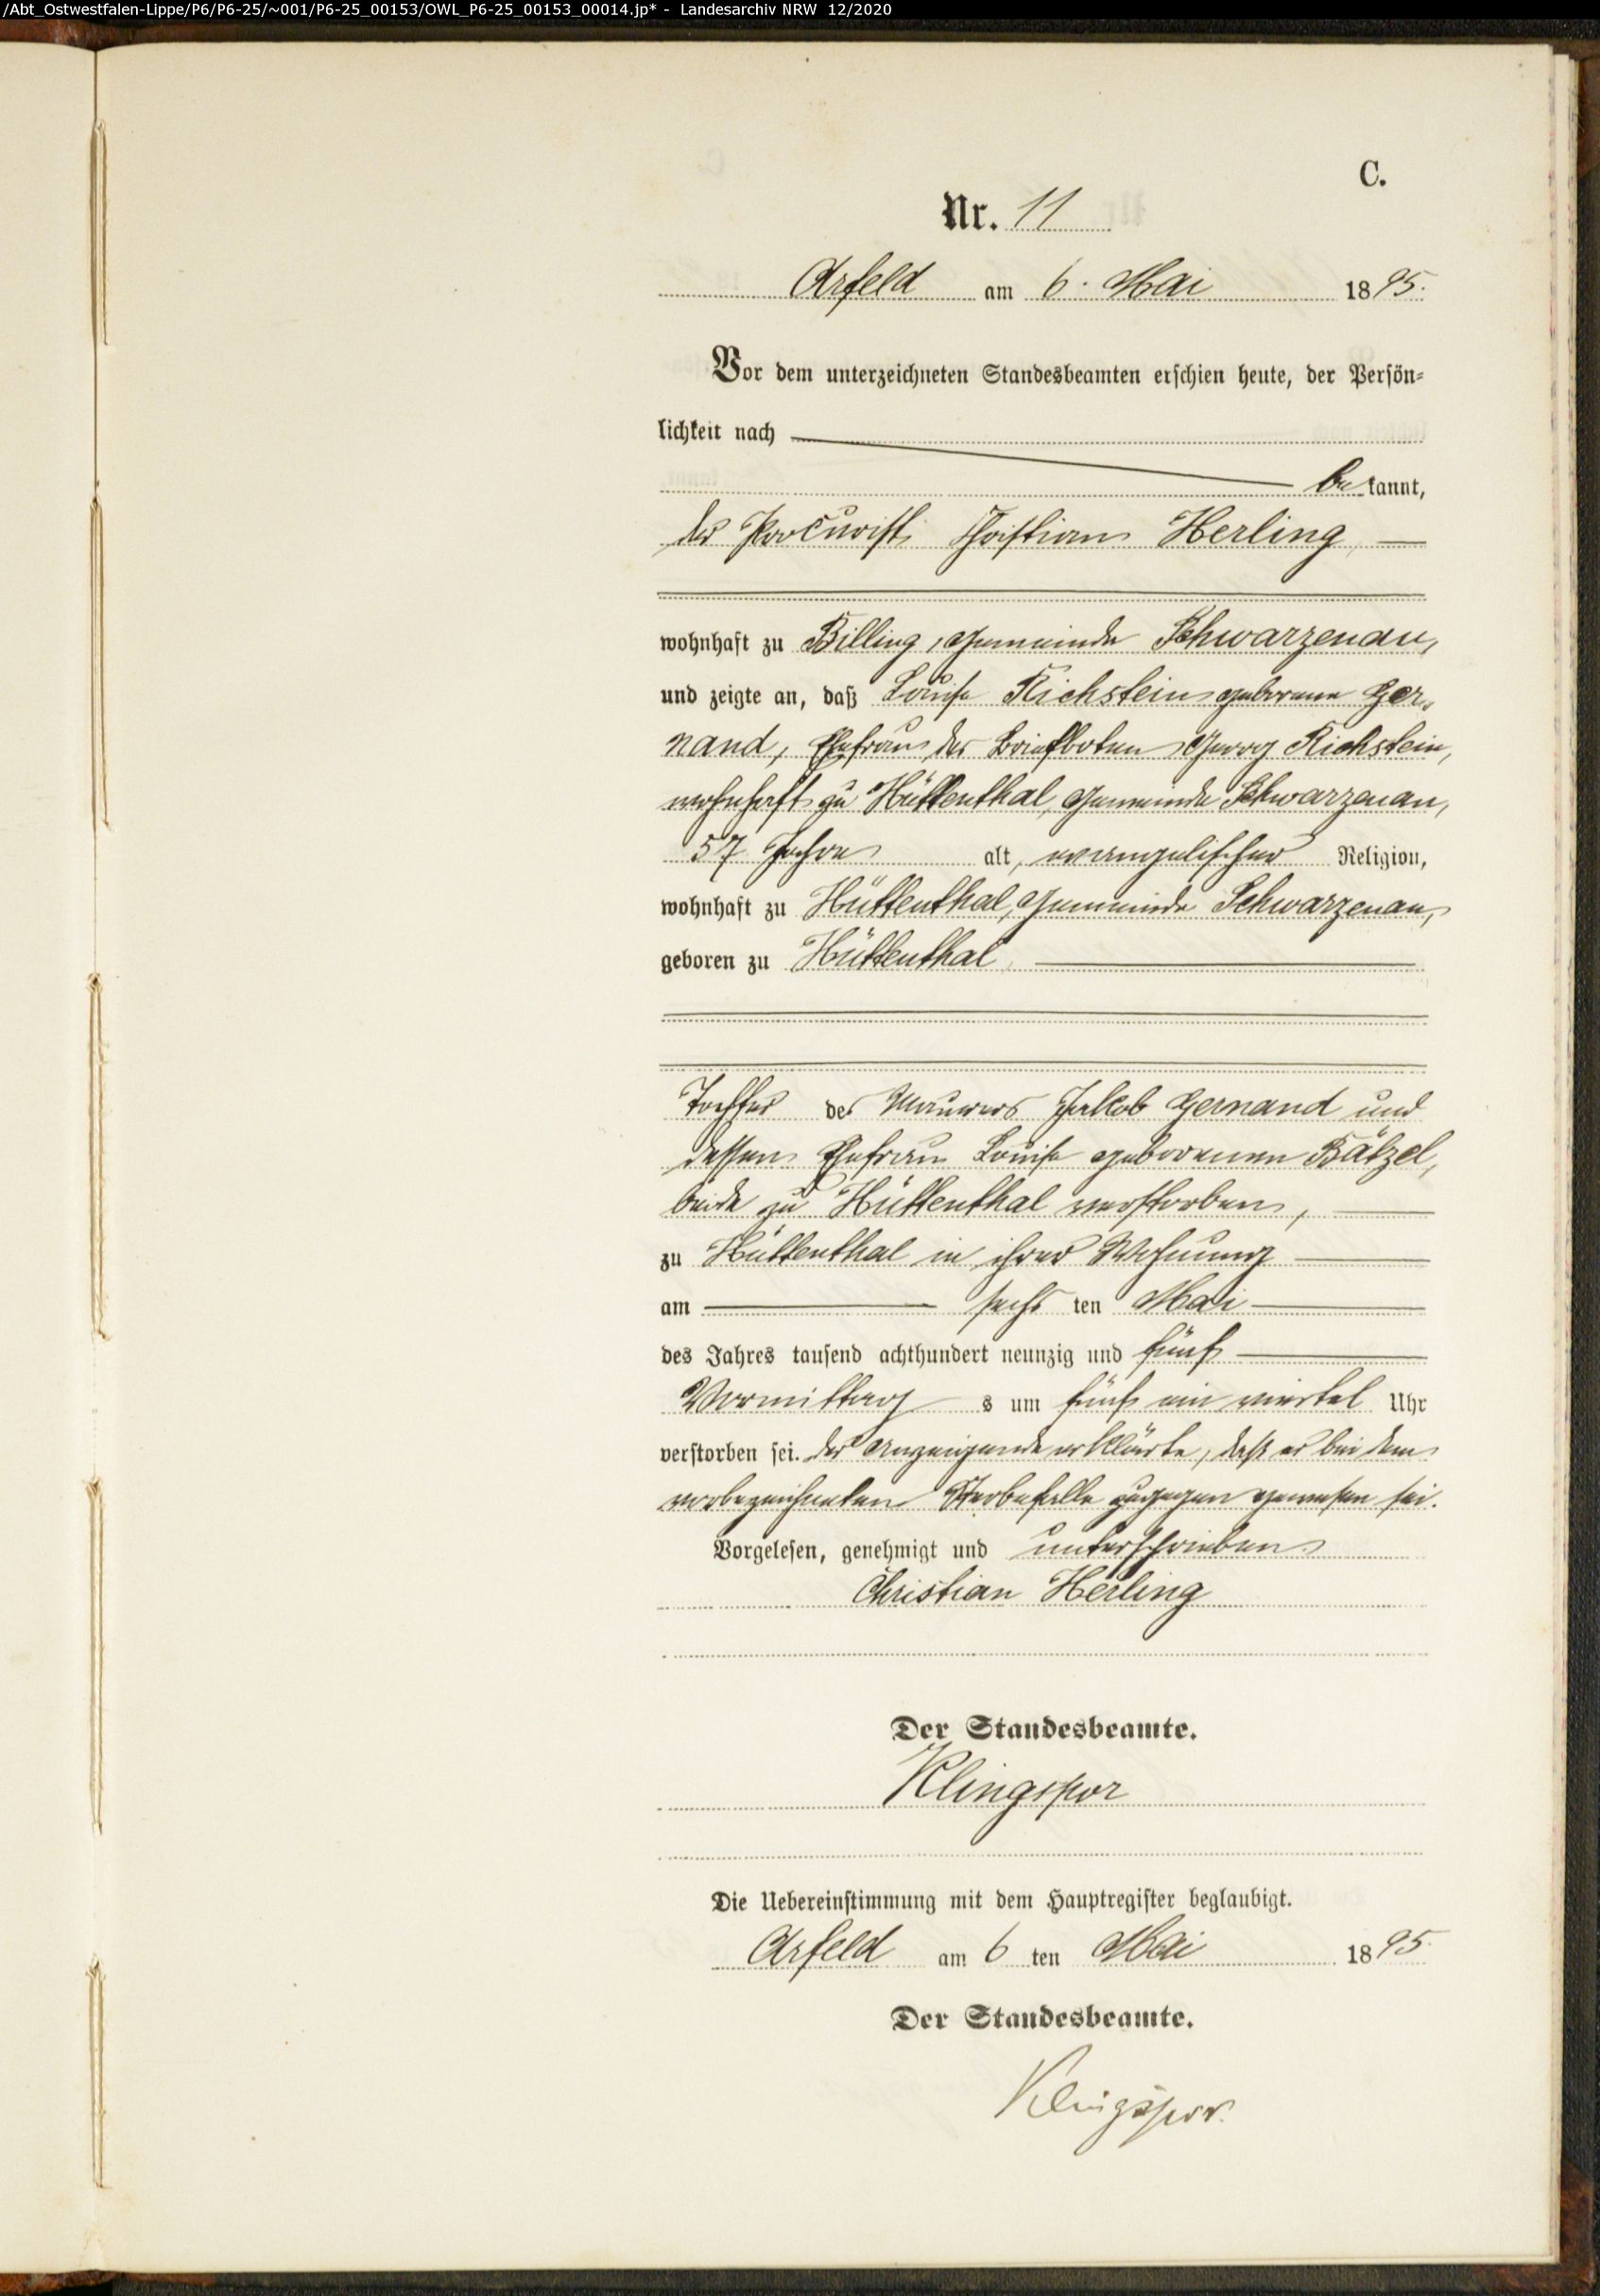 /Abt_Ostwestfalen-Lippe/P6/P6-25/~001/P6-25_00153/OWL_P6-25_00153_00014.jp* - Landesarchiv NRW 12/2020
C.
Nr. 11
Arfeld am 6. Mai 1895.
Vor dem unterzeichneten Standesbeamten erschien heute, der Persön-
lichkeit nach
bekannt,
der Procurist Christian Herling,
wohnhaft zu Billing, Gemeinde Schwarzenau,
und zeigte an, daß Louise Richstein geborene Ger-
nand, Ehefrau des Briefboten Georg Richstein,
wohnhaft zu Hüttenthal, Gemeinde Schwarzenau,
57 Jahre alt, evangelischer Religion,
wohnhaft zu Hüttenthal, Gemeinde Schwarzenau,
geboren zu Hüttenthal
Tochter des Maurers Jakob Gernand und
dessen Ehefrau Louise geborenen Bätzel,
beide zu Hüttenthal verstorben,
zu Hüttenthal in ihrer Wohnung
am sechs ten Mai
des Jahres tausend achthundert neunzig und fünf
Vormittag s um fünf ein viertel Uhr
verstorben sei. Der Anzeigende erklärte, daß er bei dem
vorbezeichneten Sterbefalle zugegen gewesen sei.
Vorgelesen, genehmigt und unterschrieben
Christian Herling
Der Standesbeamte.
Klingspor
Die Uebereinstimmung mit dem Hauptregister beglaubigt.
Arfeld am 6 ten Mai 1895.
Der Standesbeamte.
Klingspor.